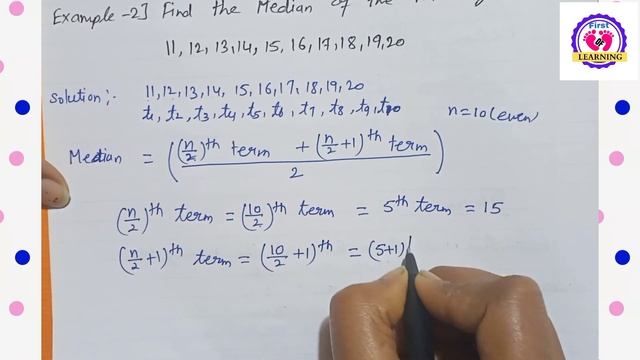 Example-2] Find the Median of the
11, 12, 13, 14, 15, 16, 17, 18, 19, 20
Solution:- 11, 12, 13, 14, 15, 16, 17, 18, 19, 20
t1, t2, t3, t4, t5, t6, t7, t8, t9, t10 n=10(even)
Median = ((n/2)th term + (n/2+1)th term / 2)
(n/2)th term = (10/2)th term = 5th term = 15
(n/2+1)th term = (10/2+1)th = (5+1)
First
LEARNING